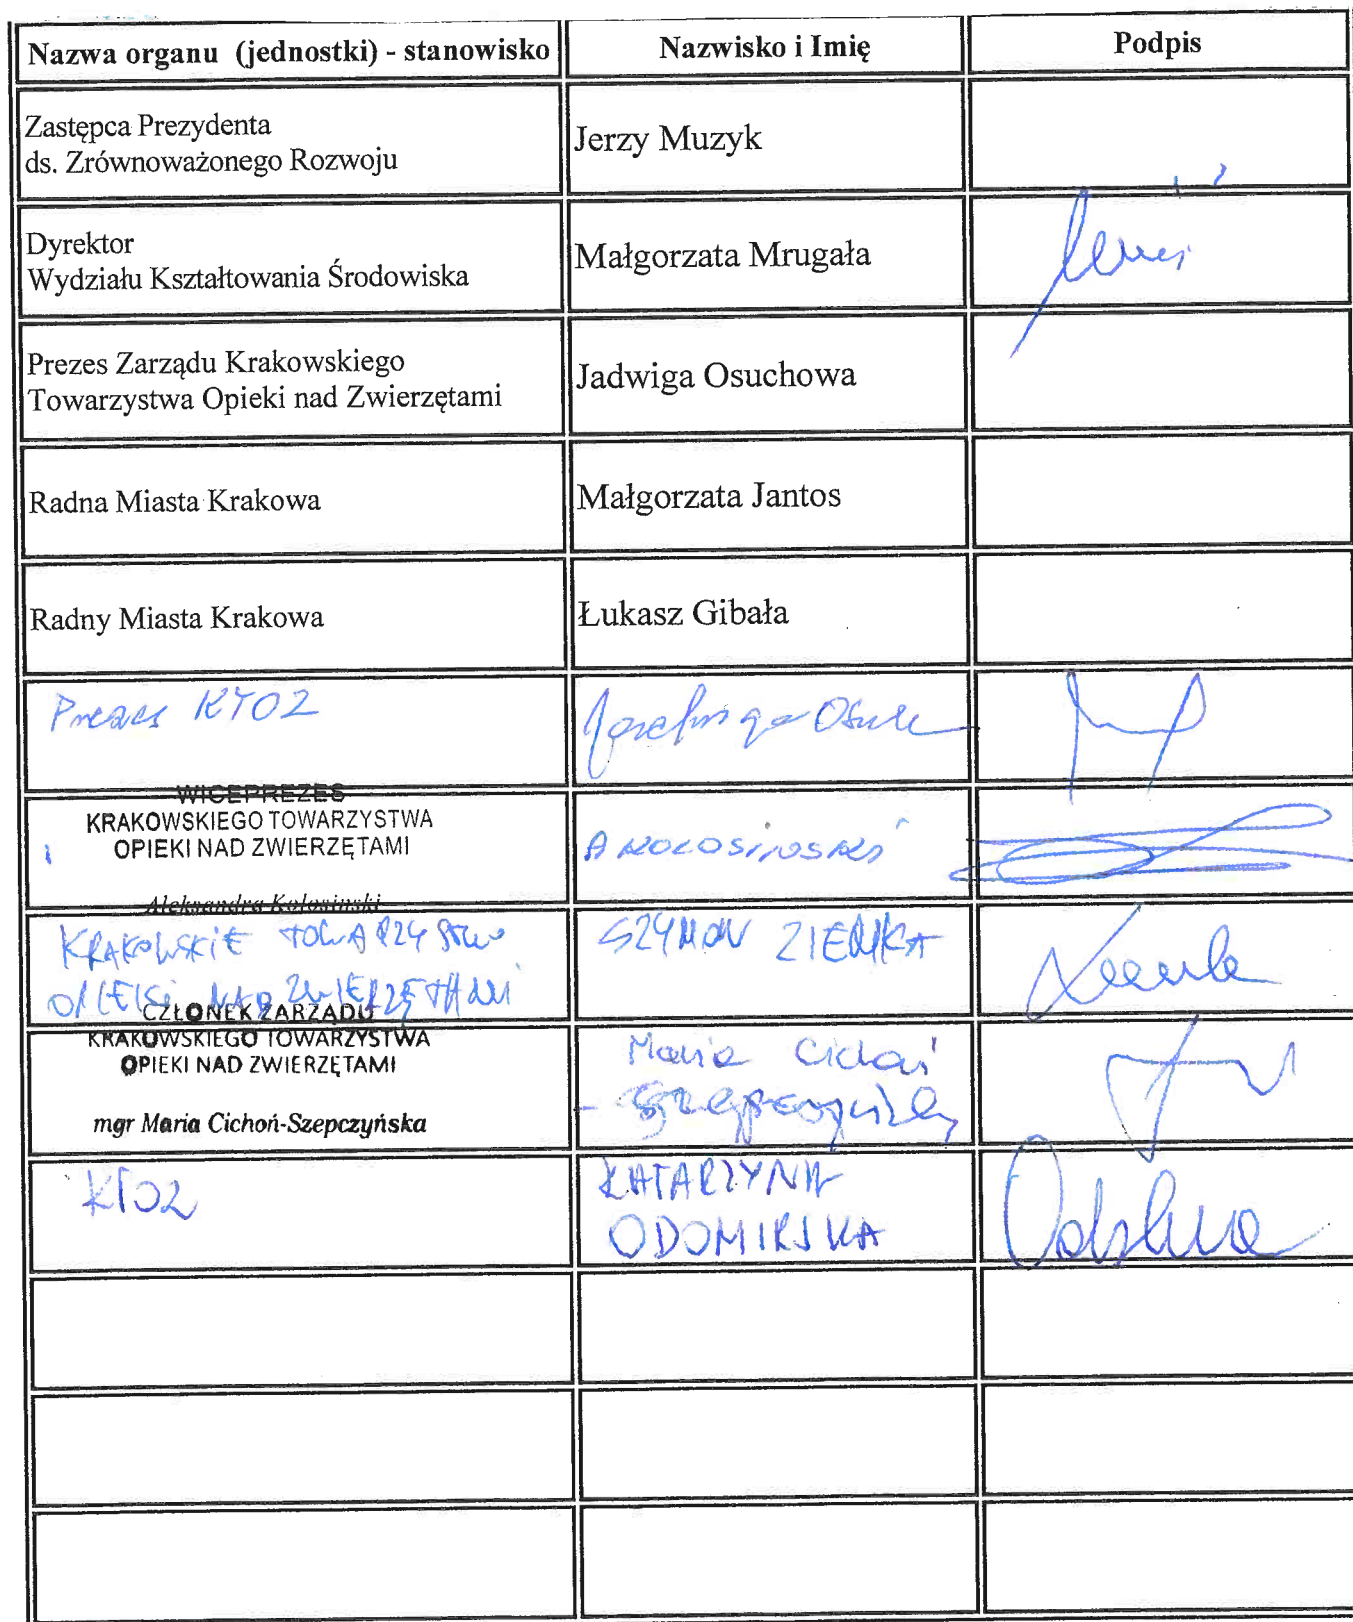 Nazwa organu (jednostki) - stanowisko Nazwisko i Imię Podpis
Zastępca Prezydenta
ds. Zrównoważonego Rozwoju
Jerzy Muzyk
Dyrektor
Wydziału Kształtowania Środowiska
Małgorzata Mrugała
Prezes Zarządu Krakowskiego
Towarzystwa Opieki nad Zwierzętami
Jadwiga Osuchowa
Radna Miasta Krakowa
Małgorzata Jantos
Radny Miasta Krakowa
Łukasz Gibała
Prezes KTOZ
WICEPREZES
KRAKOWSKIEGO TOWARZYSTWA
OPIEKI NAD ZWIERZĘTAMI
Aleksandra Kolosinski
A KOLOSIŃSKI
KRAKOWSKIE TOWARZYSTWO
OPIEKI NAD ZWIERZĘTAMI
SZYMON
CZŁONEK ZARZĄDU
KRAKOWSKIEGO TOWARZYSTWA
OPIEKI NAD ZWIERZĘTAMI
mgr Maria Cichoń-Szepczyńska
Maria Cichoń
KTOZ
KATARZYNA
ODOMIRSKA